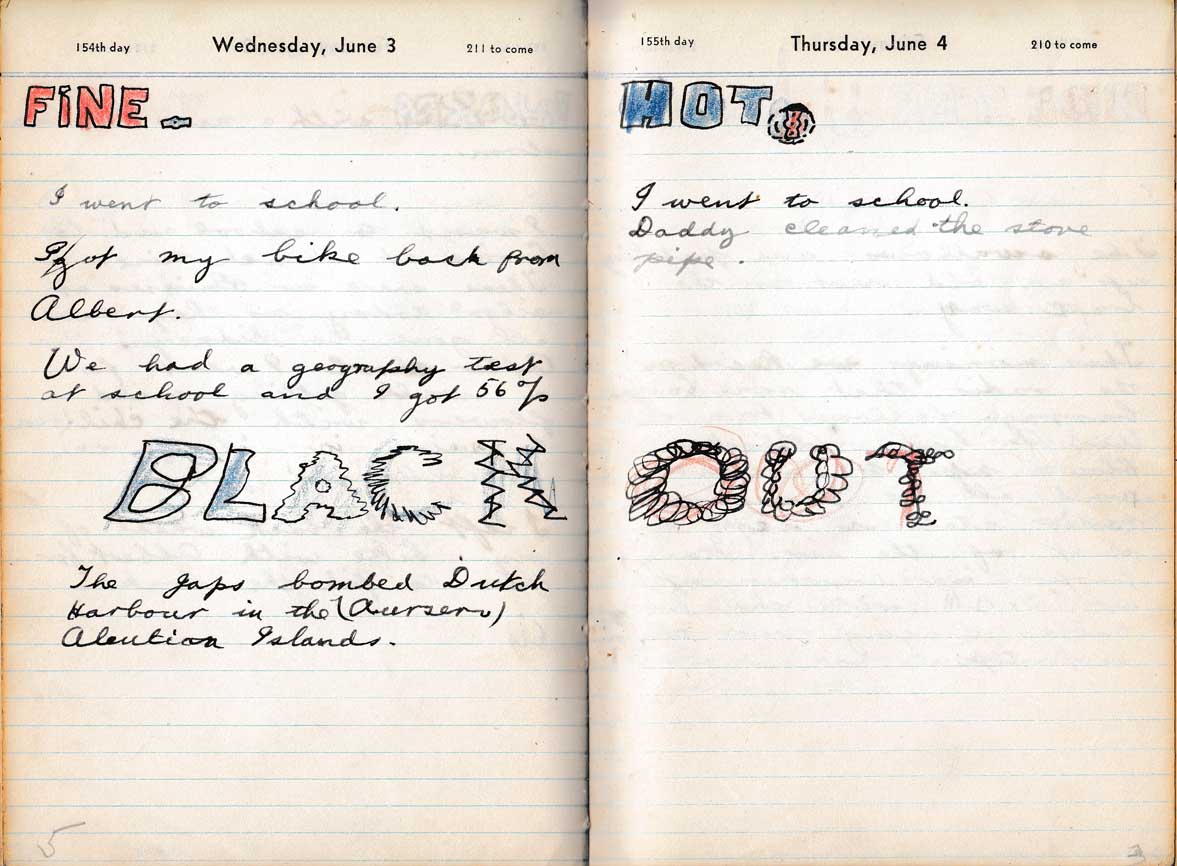 154th day Wednesday, June 3 211 to come
FINE.
I went to school.
I got my bike back from
Albert.
We had a geography test
at school and I got 56%
BLACK
The Japs bombed Dutch
Harbour in the
Aleution Islands.
5
155th day Thursday, June 4 210 to come
HOT.
I went to school.
Daddy cleaned the stove
pipe.
OUT